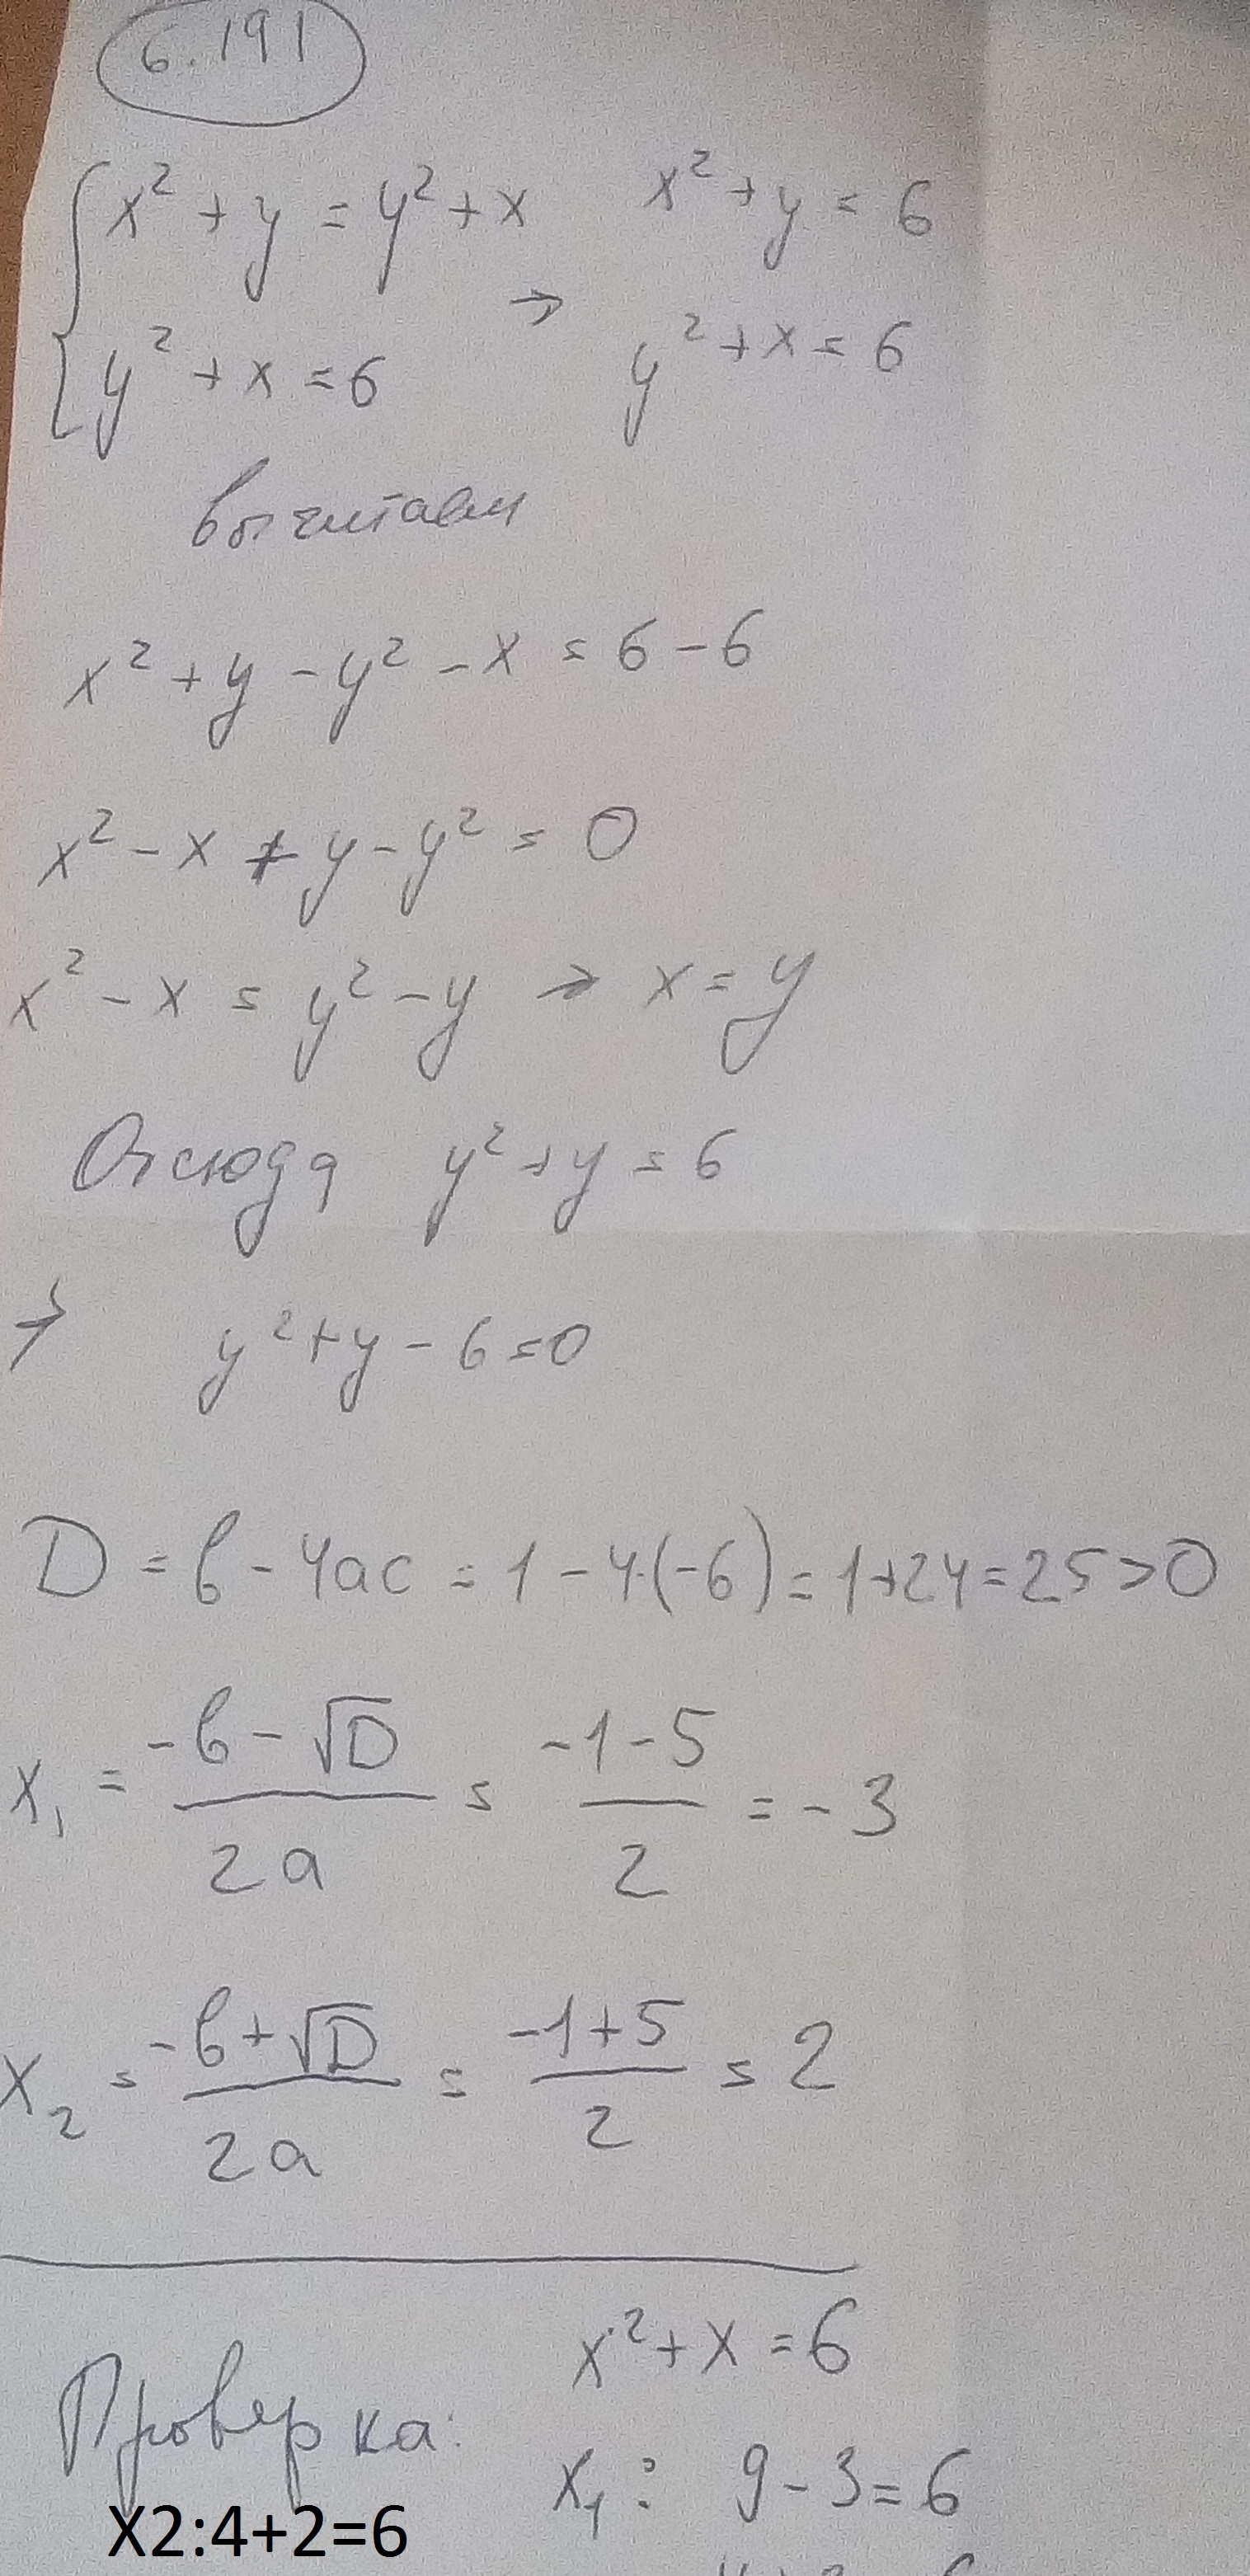 6.191
x² + y = y² + x x² + y = 6
y² + x = 6 → y² + x = 6
вычитаем
x² + y - y² - x = 6 - 6
x² - x + y - y² = 0
x² - x = y² - y → x = y
Отсюда y² + y = 6
→ y² + y - 6 = 0
D = b - 4ac = 1 - 4·(-6) = 1+24 = 25 > 0
x₁ = (-b - √D)/(2a) = (-1 - 5)/2 = -3
x₂ = (-b + √D)/(2a) = (-1 + 5)/2 = 2
x² + x = 6
Проверка:
x₁: 9 - 3 = 6
X2:4+2=6